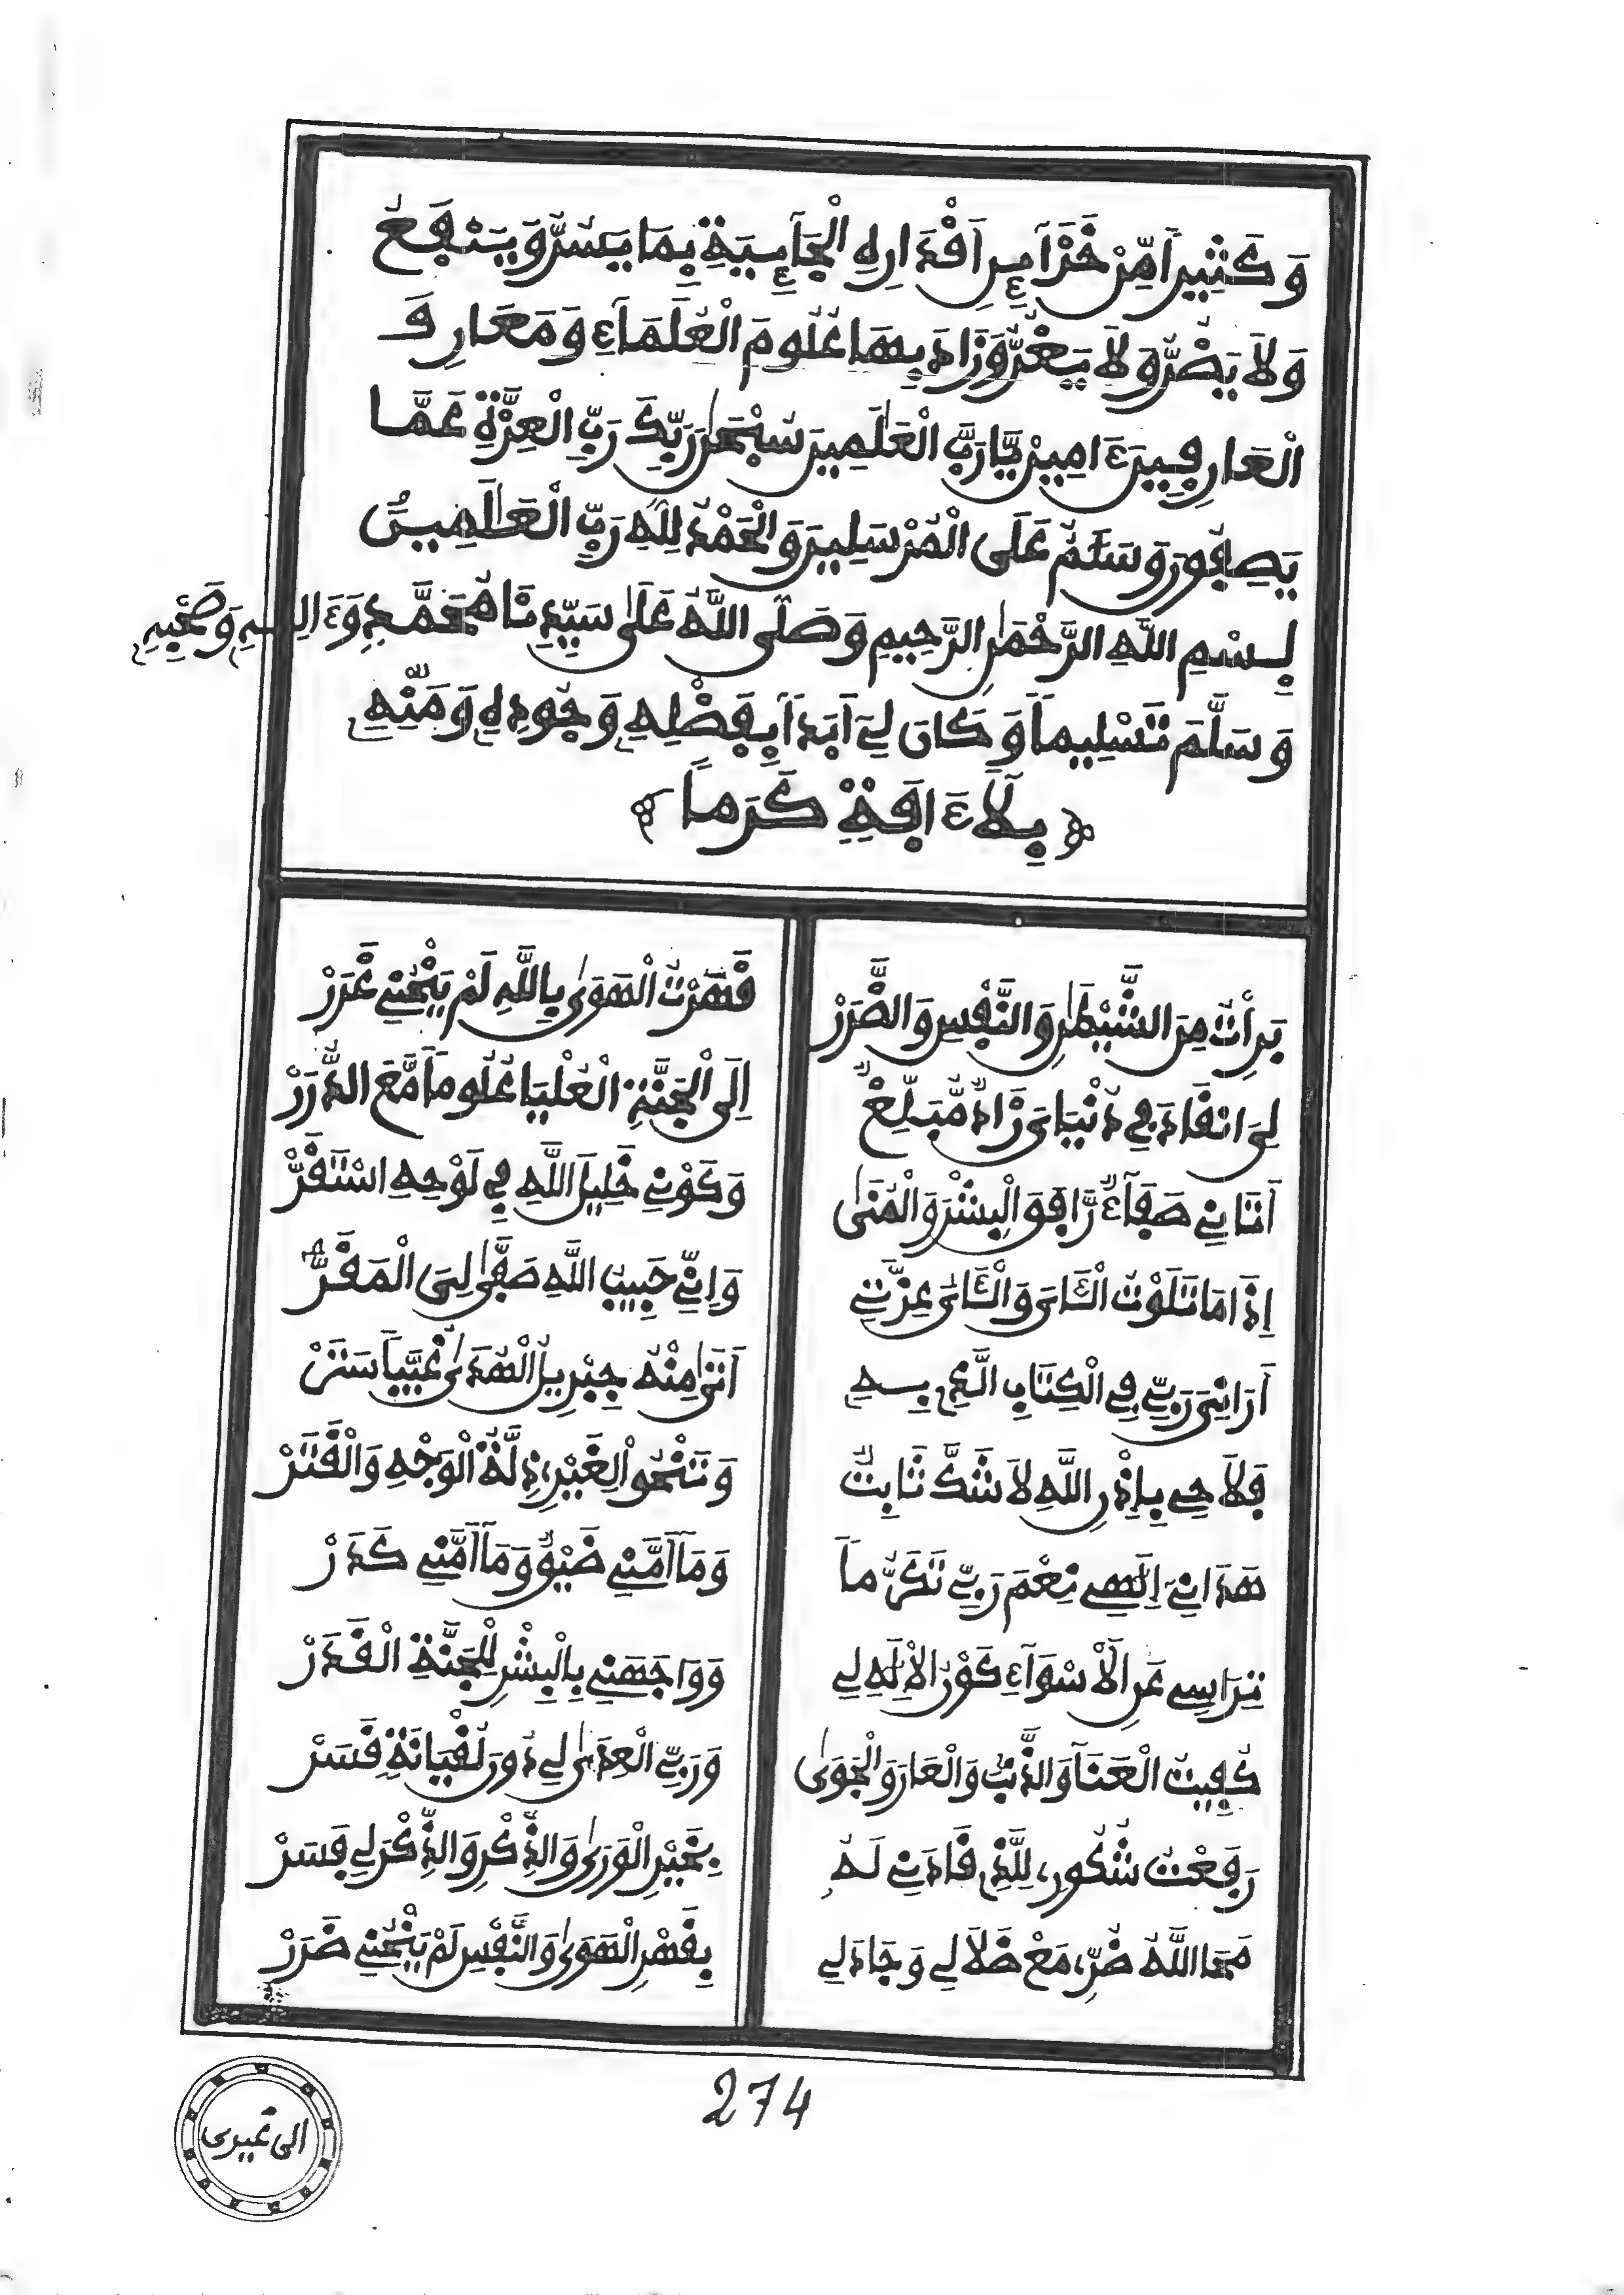 وَكَثِيراً مِّنْ خَزَآئِنِ أَقْدَارِهِ الْجَآئِيَةِ بِمَا يَسُرُّ وَيَنْفَعُ
وَلَا يَضُرُّ وَلَا يَغُرُّ وَزَادَ بِهَا عُلُومَ الْعُلَمَآءِ وَمَعَارِفَ
الْعَارِفِينَ ءَامِينَ يَا رَبَّ الْعَٰلَمِينَ سُبْحَٰنَ رَبِّكَ رَبِّ الْعِزَّةِ عَمَّا
يَصِفُونَ وَسَلَٰمٌ عَلَى الْمُرْسَلِينَ وَالْحَمْدُ لِلَّهِ رَبِّ الْعَٰلَمِينَ
بِسْمِ اللَّهِ الرَّحْمَٰنِ الرَّحِيمِ وَصَلَّى اللَّهُ عَلَىٰ سَيِّدِنَا مُحَمَّدٍ وَءَالِهِ وَصَحْبِهِ
وَسَلَّمَ تَسْلِيماً وَكَانَ لِيَ أَبَداً بِفَضْلِهِ وَجُودِهِ وَمَنِّهِ
بِلَا ءَافَةٍ كَرَماً
بَرِأْتُ مِنَ الشَّيْطَٰنِ وَالنَّفْسِ وَالضَّرَرْ
قَهَرْتُ الْهَوَىٰ بِاللَّهِ لَمْ يَنْحُنِي غَرَرْ
لِيَ انْقَادَ فِي دُنْيَايَ زَادٌ مُّبَلِّغٌ
إِلَى الْجَنَّةِ الْعُلْيَا عُلُوماً مَّعَ الدُّرَرْ
أَتَانِي صَفَآءٌ رَّافَقَ الْبِشْرَ وَالْمُنَىٰ
وَكَوْنِي خَلِيلَ اللَّهِ فِي لَوْحِهِ اسْتَقَرّْ
إِذَا مَا تَلَوْتُ الْـَٔايَ وَالْـَٔايُ عِزَّتِي
وَإِنِّي حَبِيبُ اللَّهِ صَفَّىٰ لِيَ الْمَقَرّْ
أَرَانِيَ رَبِّي فِي الْكِتَابِ الَّذِي بِهِ
أَتَىٰ مِنْهُ جِبْرِيلُ الْهُدَىٰ غَيِّباً سَتَرْ
فَلَاحِي بِإِذْنِ اللَّهِ لَا شَكَّ ثَابِتٌ
وَتَنْحُو لِغَيْرِي ذِلَّةُ الْوَجْهِ وَالْقَتَرْ
هَدَانِي إِلَٰهِي نِعْمَ رَبِّي تَكَرُّماً
وَمَا أَمَّنِي ضَيْقٌ وَمَا أَمَّنِي كَدَرْ
تِرَاسِي عَنِ الْأَسْوَآءِ كَوْنُ الْإِلَٰهِ لِي
وَوَاجَهَنِي بِالْبِشْرِ لِلْجَنَّةِ الْقَدَرْ
كُفِيتُ الْعَنَا وَالذَّنْبَ وَالْعَارَ وَالْجَوَىٰ
وَرَبِّي الْعِدَىٰ لِي دُونَ لُقْيَانَةٍ قَسَرْ
رَفَعْتُ شُكُورِي لِلَّذِي قَادَنِي لَهُ
بِخَيْرِ الْوَرَىٰ وَالذِّكْرِ وَالذِّكْرَ لِي فَسَرْ
مَحَا اللَّهُ ضُرِّي مَعْ ضَلَالِي وَجَادَ لِي
بِقَهْرِ الْهَوَىٰ وَالنَّفْسِ لَمْ يَنْحُنِي ضَرَرْ
274